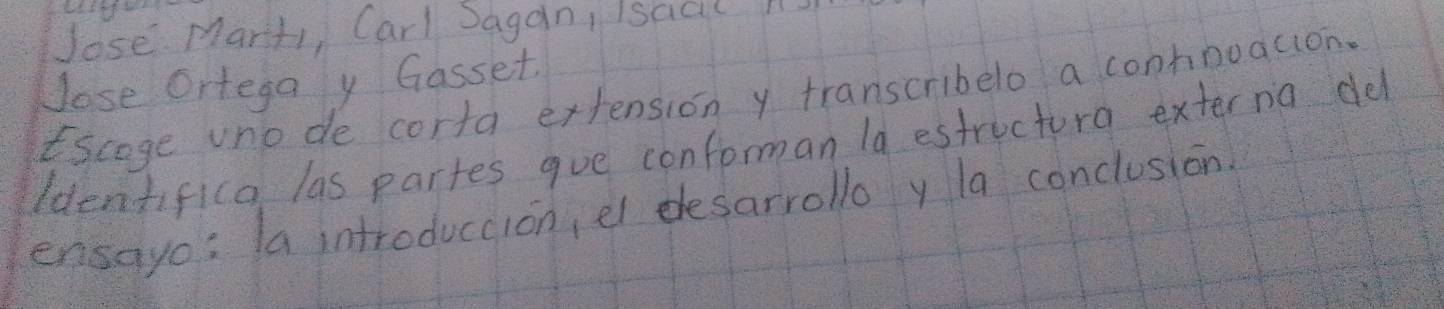 José Martí, Carl Sagan, Isaac
Jose Ortega y Gasset.
Escoge uno de corta extensión y transcribelo a continoación.
Identifica las partes que conforman la estructura externa del
ensayo: la introducción, el desarrollo y la conclusión.